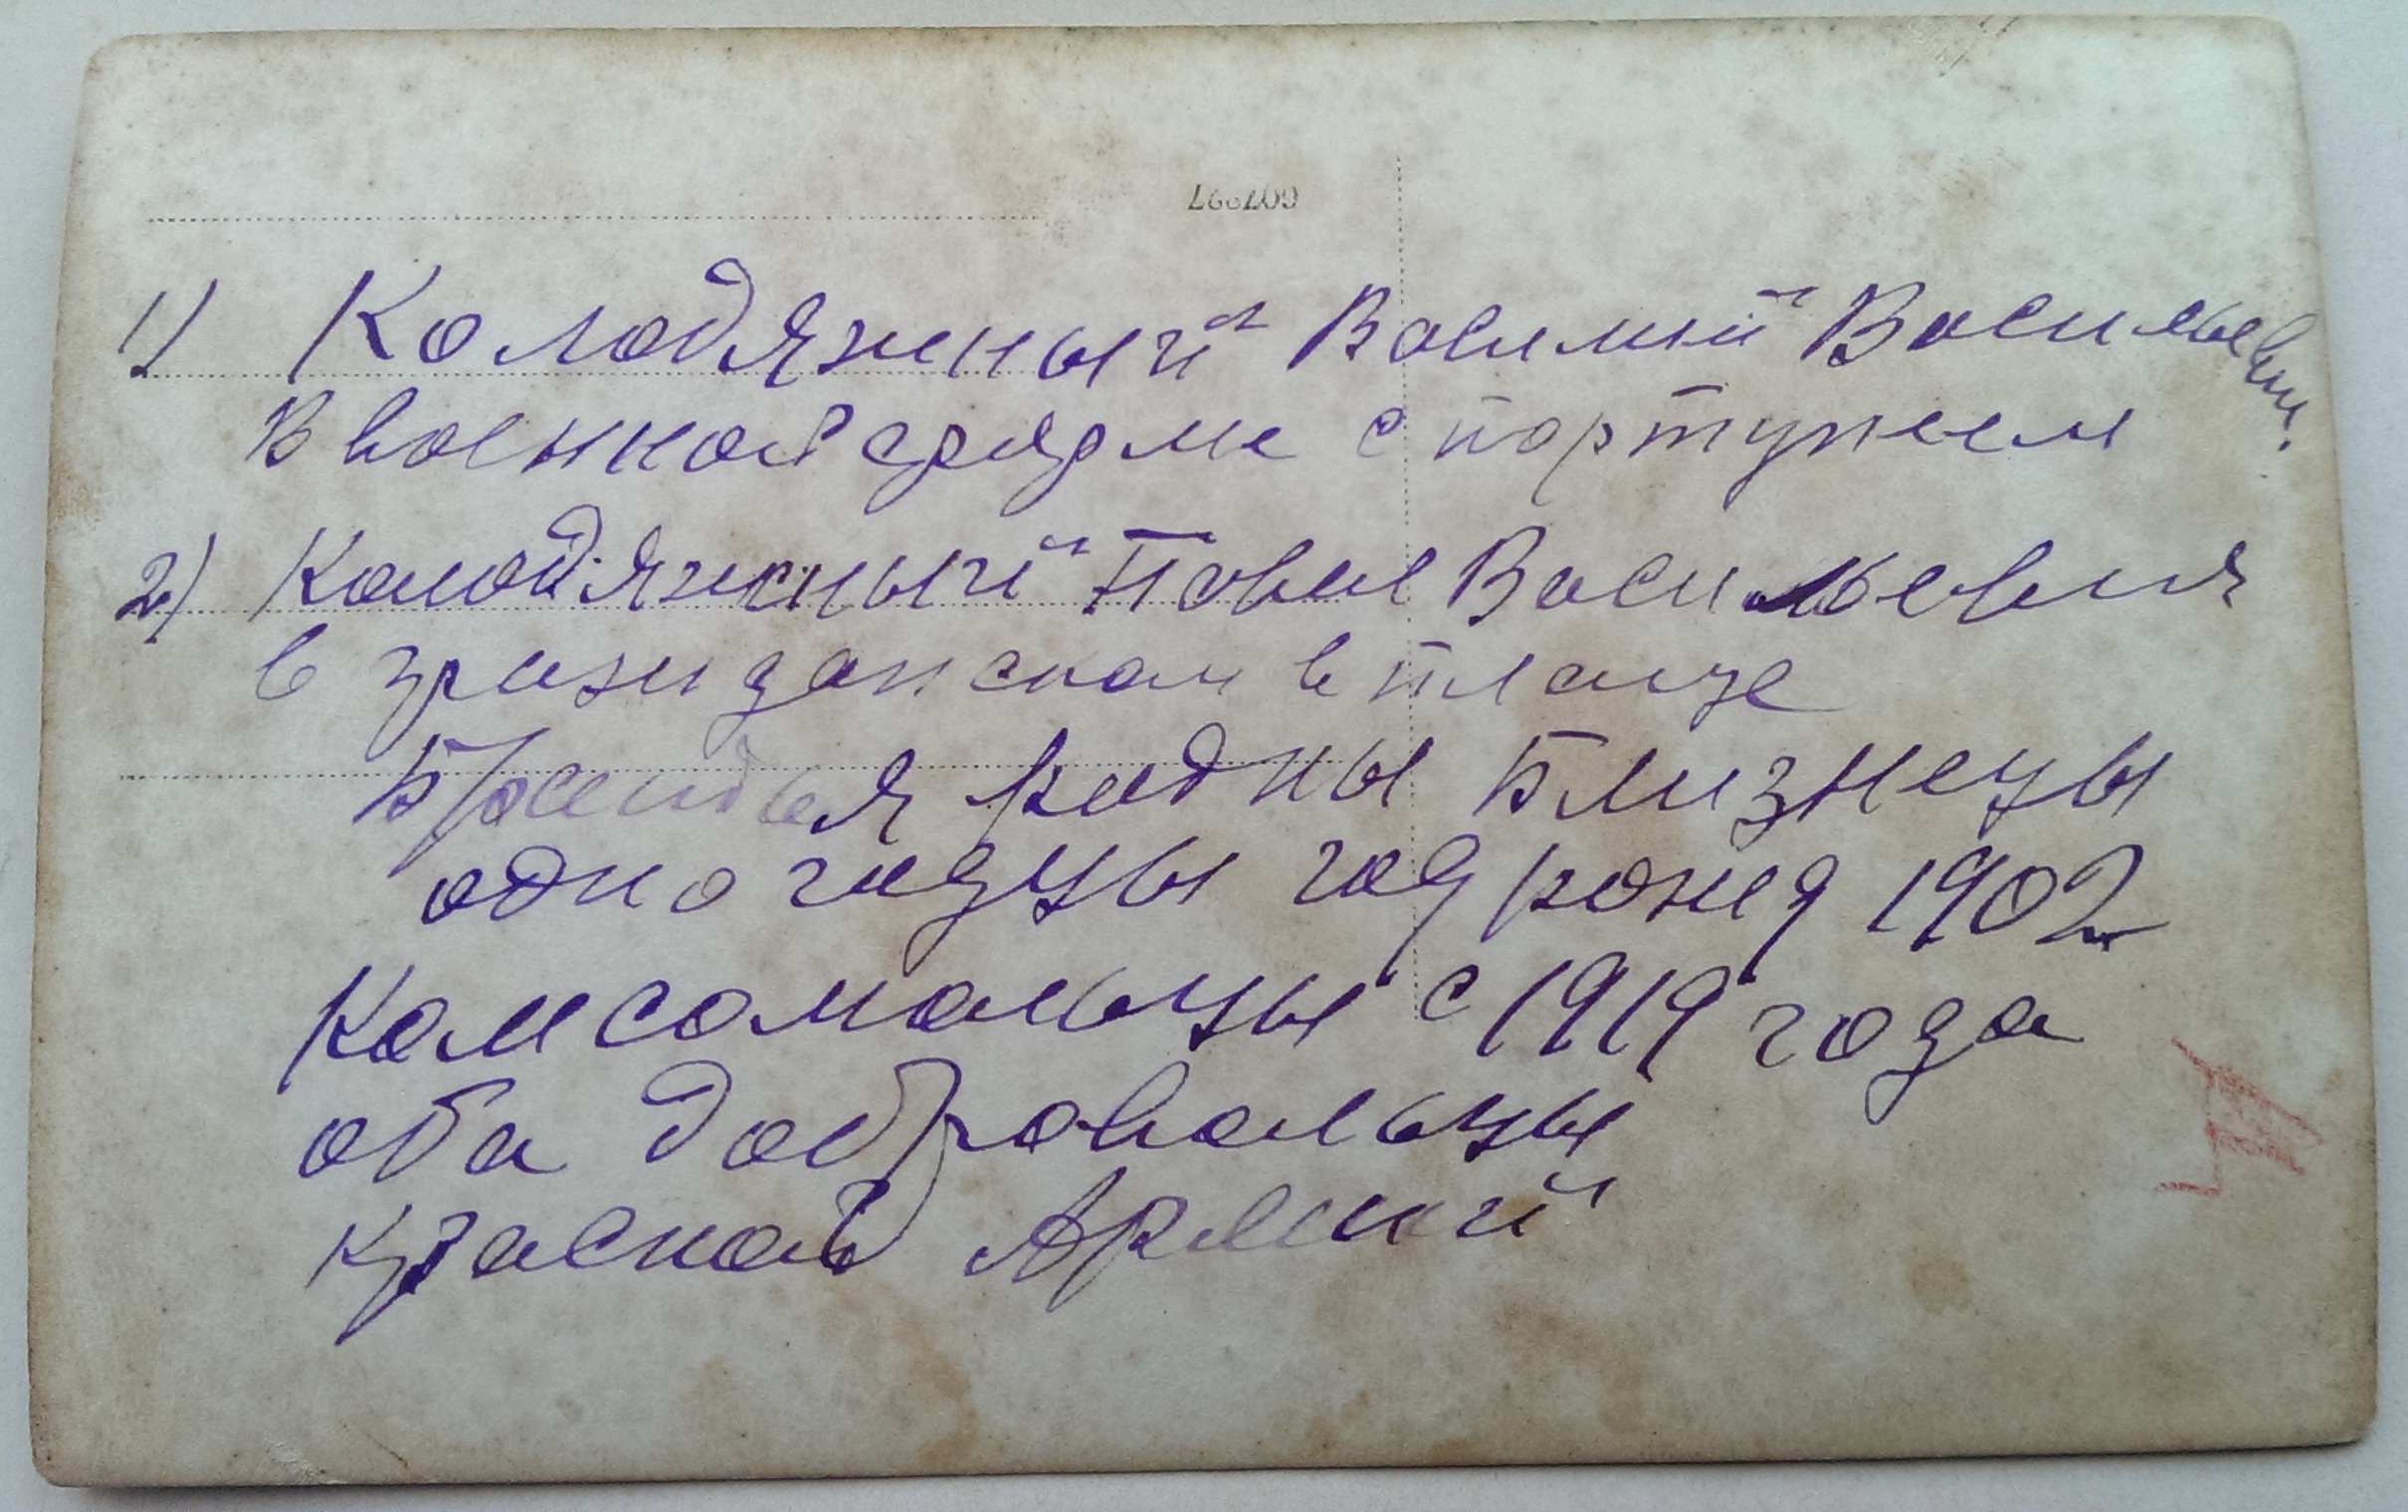 1) Колодяжный Василий Васильевич.
В военной форме с портупеем
2) Колодяжный Павел Васильевич
в гражданском в плаще
Братья родны Близнецы
одногодцы год рожд 1902
Комсомольцы с 1919 года
оба добровольцы
красной Армий